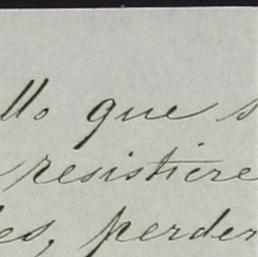 llo que s
resistiere
es, perder